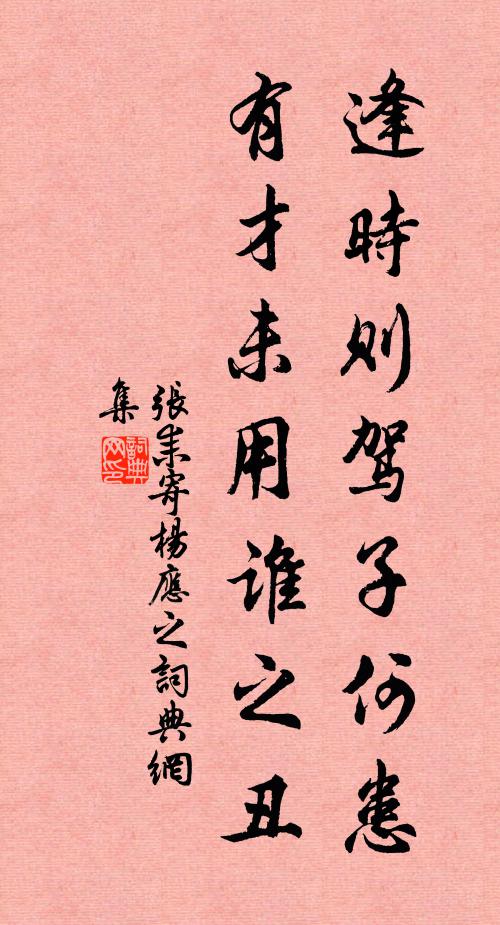 逢時則駕子何患
有才未用誰之丑
張耒寄楊應之詞典網
集
詞典网印